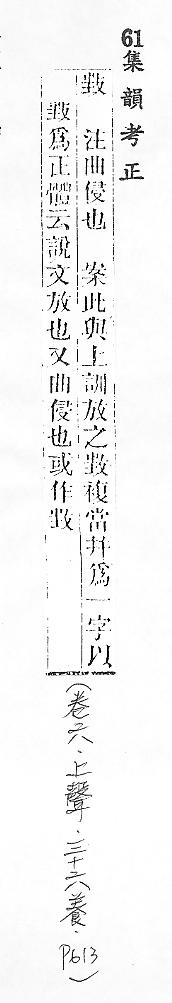 61集韻考正
𢾭 注曲侵也 案此與上訓放之𢾭複當并爲一字以
𢾭爲正體云說文放也又曲侵也或作𢾭
(卷六·上聲·三十六養·P613)